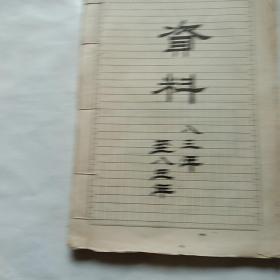 資料
八三年
至八三年